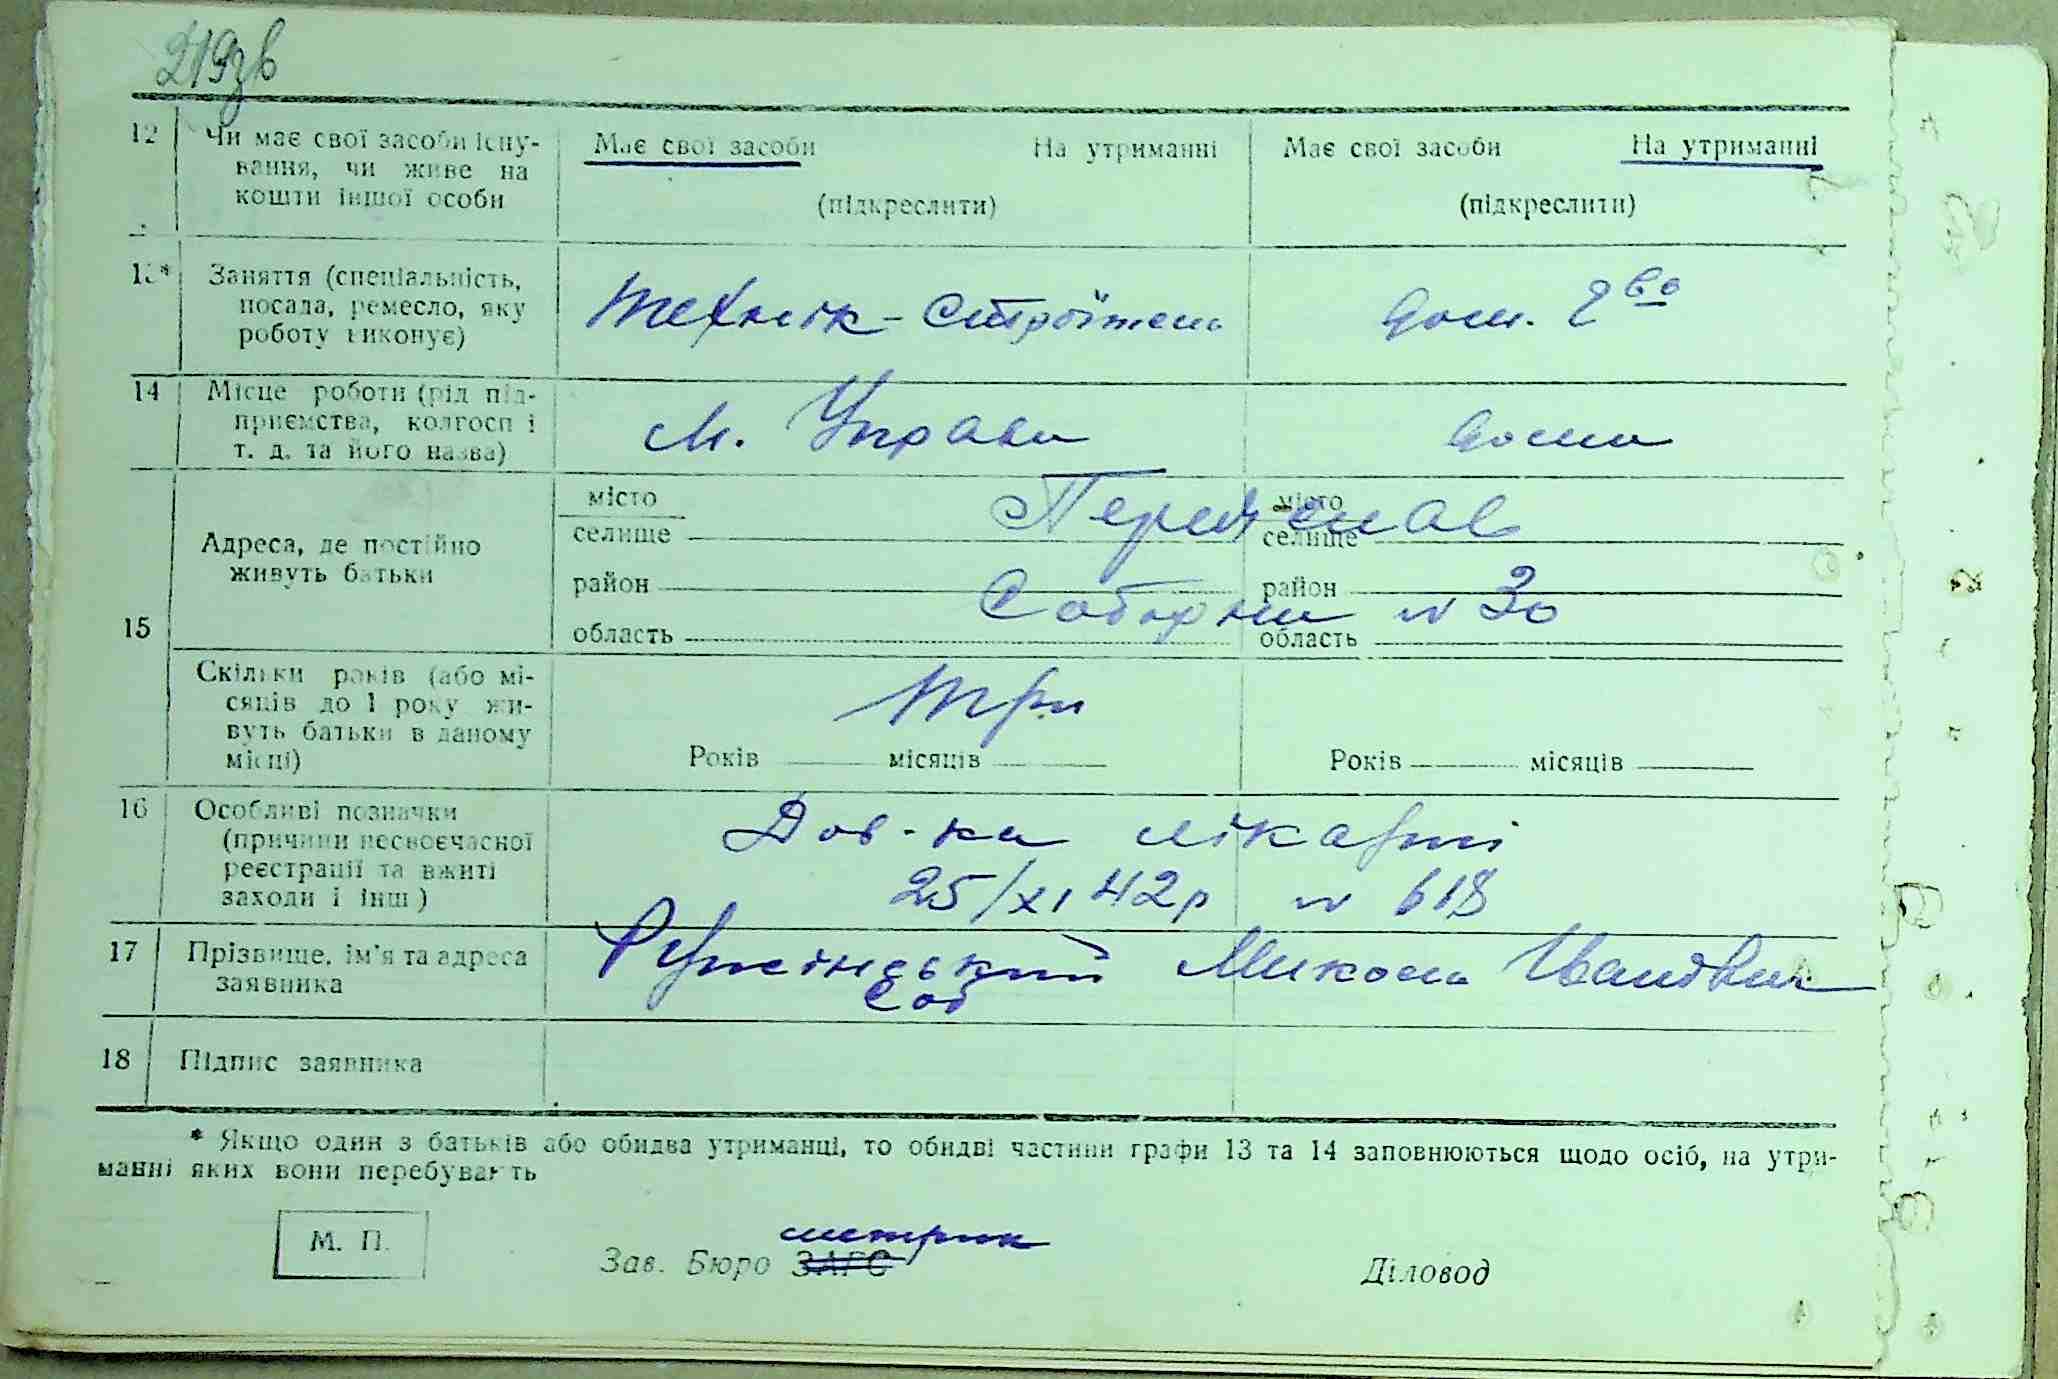 219зв
12 Чи має свої засоби існу-
вання, чи живе на
кошти іншої особи
Має свої засоби На утриманні
(підкреслити)
Має свої засоби На утриманні
(підкреслити)
13* Заняття (спеціальність,
посада, ремесло, яку
роботу виконує)
Технік-строїтель
Дом. г-во
14 Місце роботи (рід під-
приємства, колгосп і
т. д. та його назва)
М. Управа
Дома
15
Адреса, де постійно
живуть батьки
місто
селище
район
область
місто
селище
район
область
Переяслав
Соборна № 30
Скільки років (або мі-
сяців до 1 року жи-
вуть батьки в даному
місці)
три
Років місяців
Років місяців
16 Особливі позначки
(причини несвоєчасної
реєстрації та вжиті
заходи і інш)
Дов-ка лікарні
25/XI 42р № 618
17 Прізвище, ім'я та адреса
заявника
Микола Іванович
Соб
18 Підпис заявника
* Якщо один з батьків або обидва утриманці, то обидві частини графи 13 та 14 заповнюються щодо осіб, на утри-
манні яких вони перебувають
М. П.
метрик
Зав. Бюро ЗАГС
Діловод